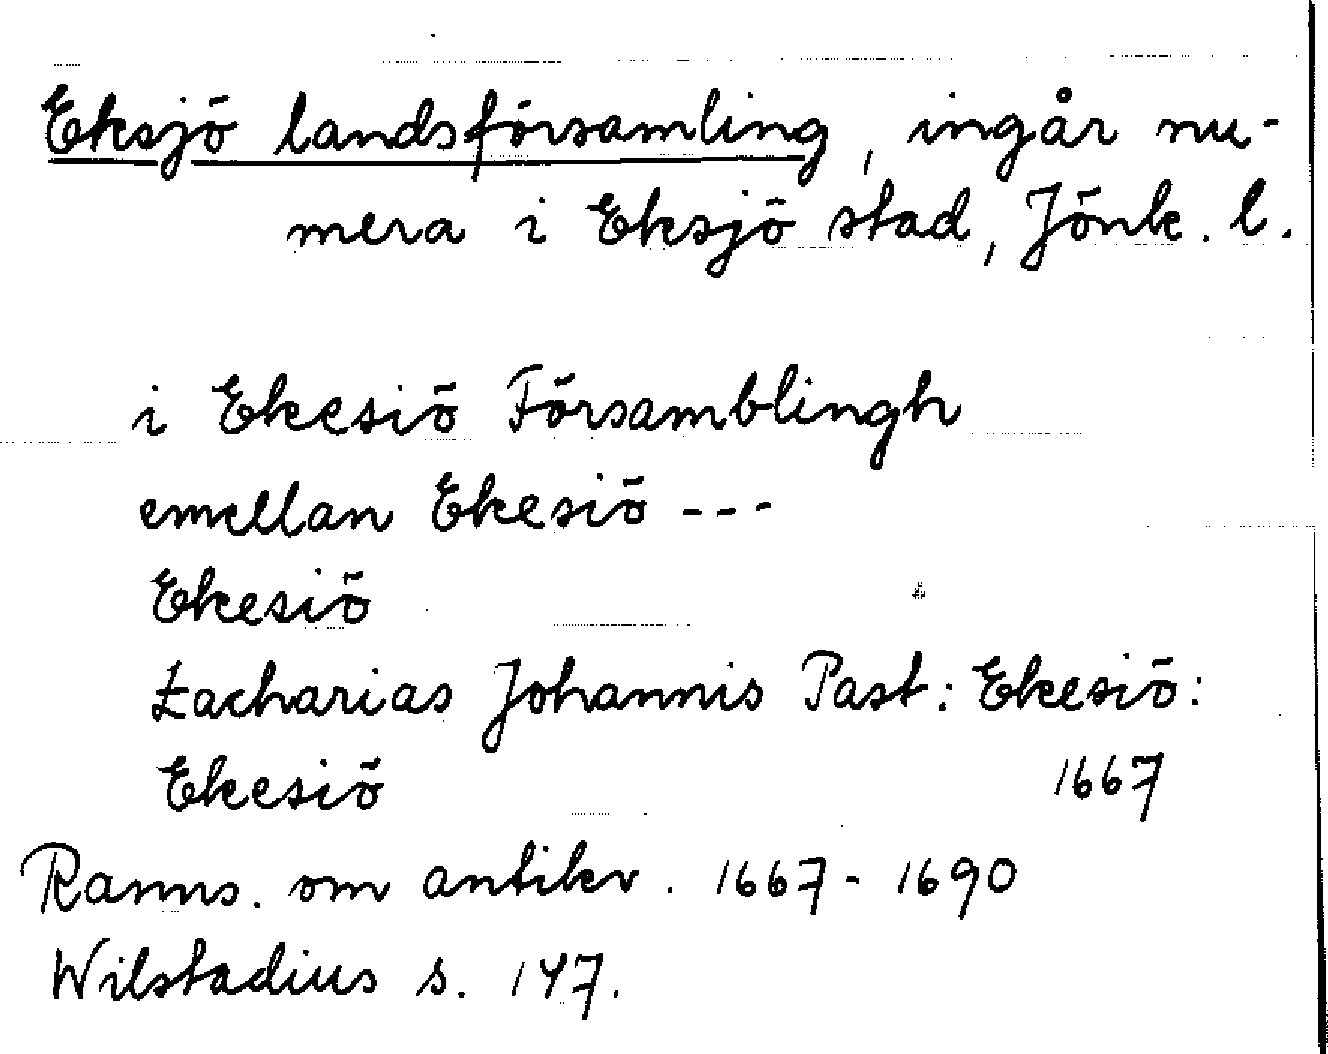 Eksjö landsförsamling, ingår nu-
mera i Eksjö stad, Jönk. l.
i Ekesiö Församblingh
emellan Ekesiö ---
Ekesiö
Zacharias Johannis Past: Ekesiö:
Ekesiö 1667
Ranns. om antikv. 1667-1690
Wilstadius s. 147.